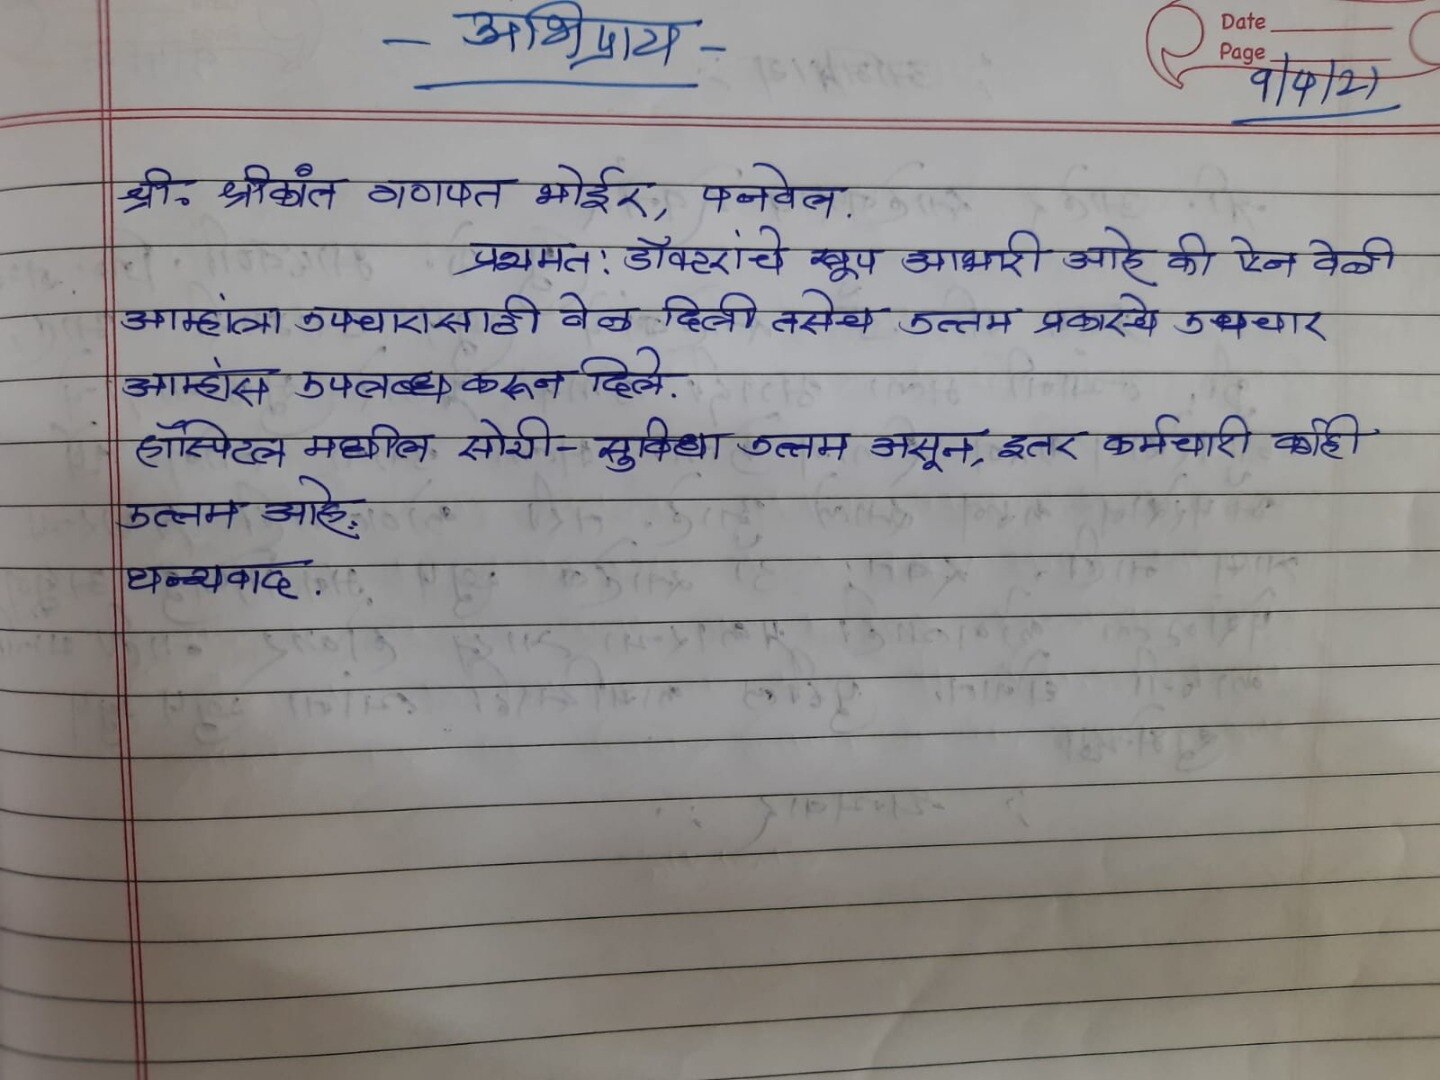 - अभिप्राय -
Date
Page
१/५/२१
श्री. श्रीकांत गणपत भोईर, पनवेल.
प्रथमतः डॉक्टरांचे खूप आभारी आहे की ऐन वेळी
आम्हांला उपचारासाठी वेळ दिली तसेच उत्तम प्रकारचे उपचार
आम्हांस उपलब्ध करून दिले.
हॉस्पिटल मधील सोयी-सुविधा उत्तम असून, इतर कर्मचारी काही
उत्तम आहे.
धन्यवाद.